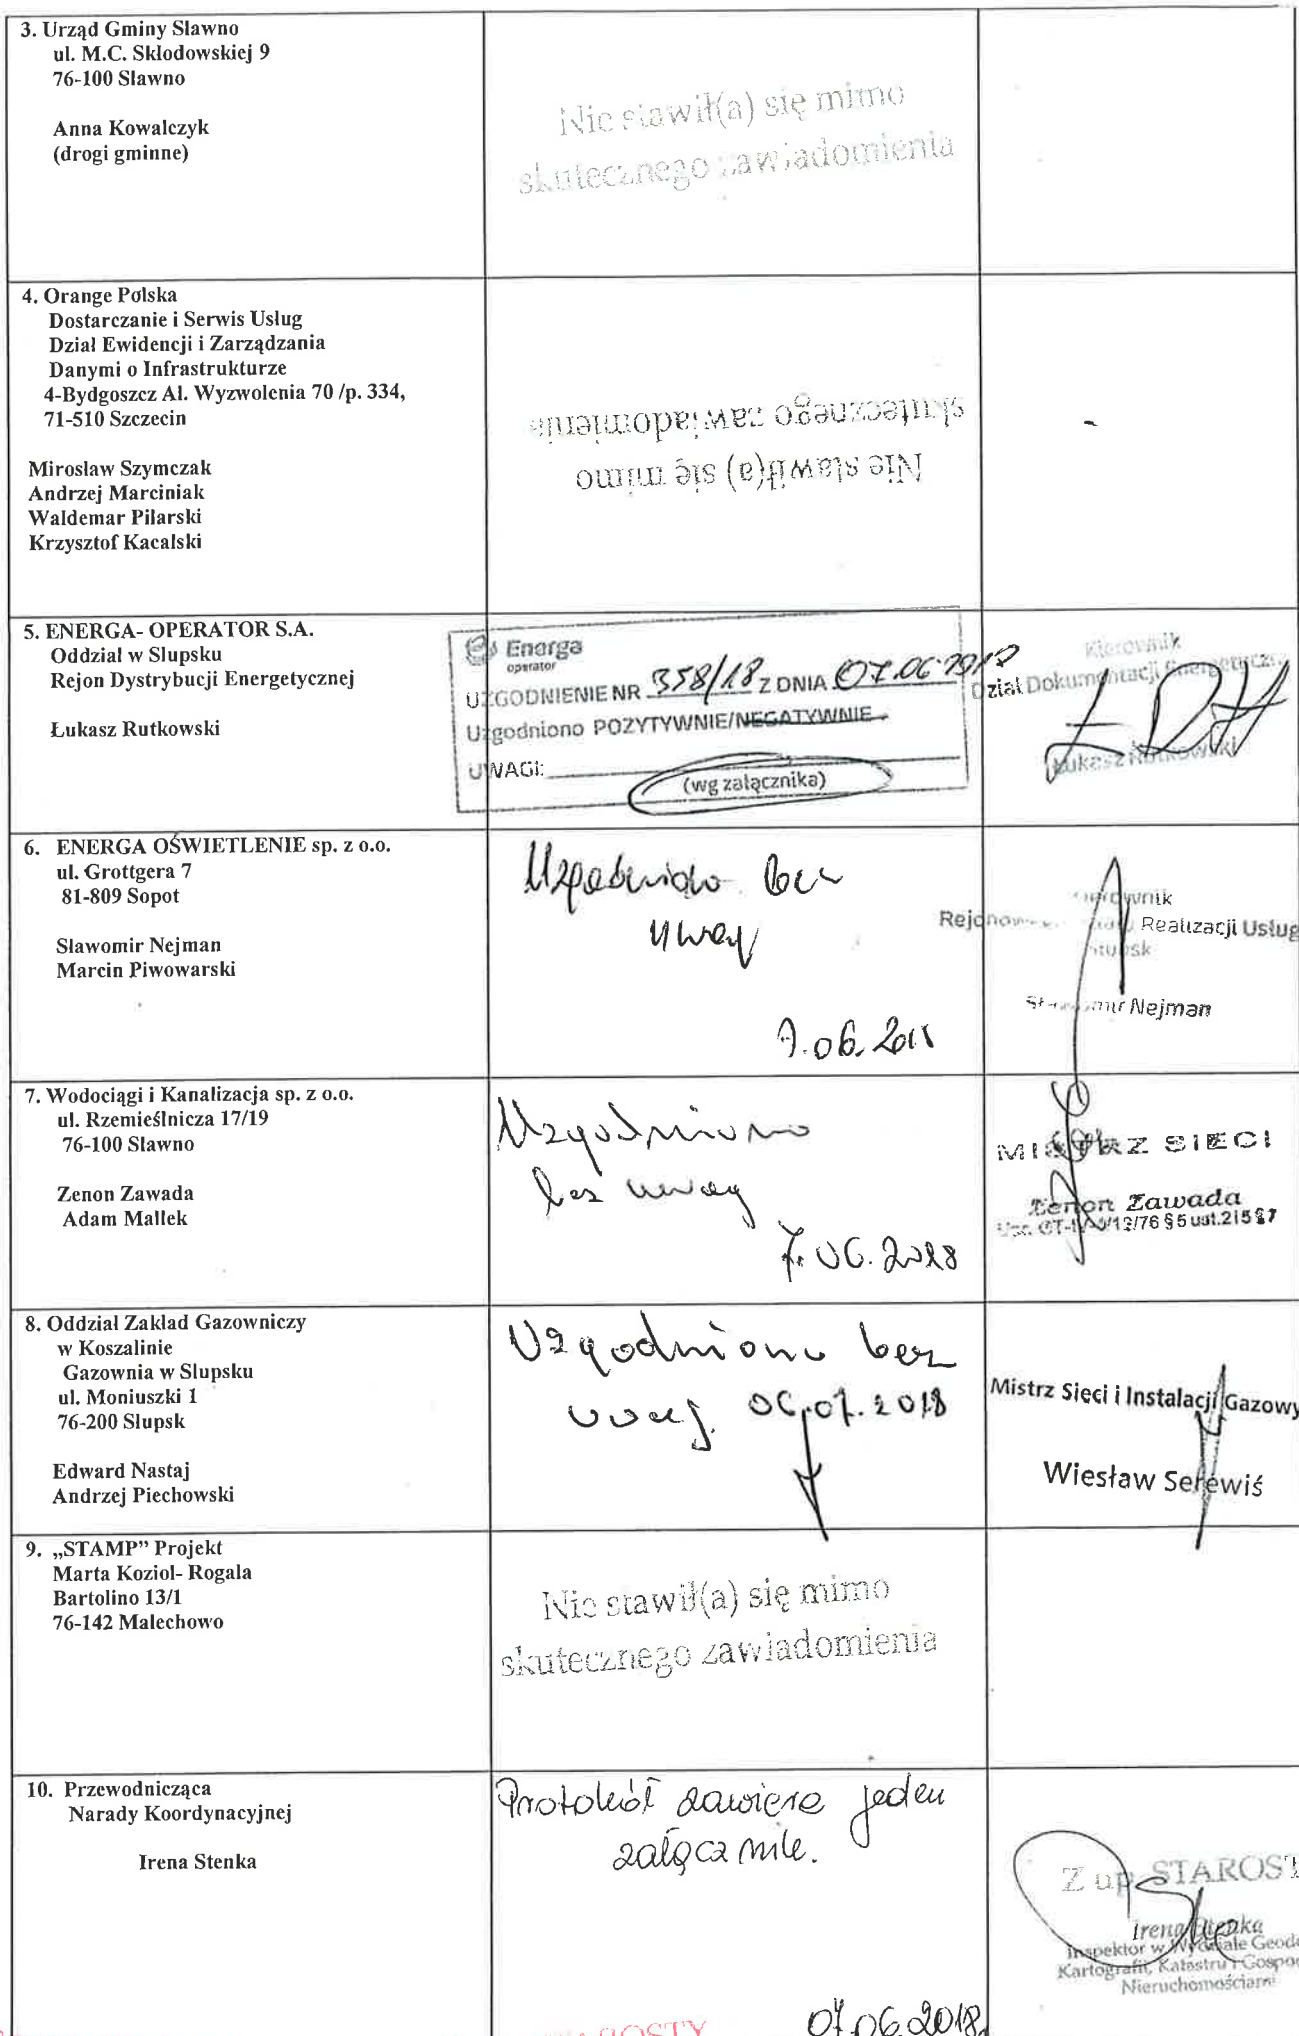 3. Urząd Gminy Sławno
ul. M.C. Skłodowskiej 9
76-100 Sławno
Anna Kowalczyk
(drogi gminne)
Nie stawił(a) się mimo
skutecznego zawiadomienia
4. Orange Polska
Dostarczanie i Serwis Usług
Dział Ewidencji i Zarządzania
Danymi o Infrastrukturze
4-Bydgoszcz Al. Wyzwolenia 70 /p. 334,
71-510 Szczecin
Mirosław Szymczak
Andrzej Marciniak
Waldemar Pilarski
Krzysztof Kacalski
Nie stawił(a) się mimo
skutecznego zawiadomienia
5. ENERGA- OPERATOR S.A.
Oddział w Słupsku
Rejon Dystrybucji Energetycznej
Łukasz Rutkowski
Energa
operator
UZGODNIENIE NR 358/18 Z DNIA 07.06.2018
Uzgodniono POZYTYWNIE/NEGATYWNIE
UWAGI:
(wg załącznika)
Kierownik
Dział Dokumentacji Energetycz
Łukasz Rutkowski
6. ENERGA OŚWIETLENIE sp. z o.o.
ul. Grottgera 7
81-809 Sopot
Sławomir Nejman
Marcin Piwowarski
Uzgodniono bez
uwag
7.06.2018
Kierownik
Realizacji Usług
Słupsk
Sławomir Nejman
7. Wodociągi i Kanalizacja sp. z o.o.
ul. Rzemieślnicza 17/19
76-100 Sławno
Zenon Zawada
Adam Mallek
Uzgodniono
bez uwag
7.06.2018
MISTRZ SIECI
Zenon Zawada
13/76 §5 ust.2 i 5 §7
8. Oddział Zakład Gazowniczy
w Koszalinie
Gazownia w Słupsku
ul. Moniuszki 1
76-200 Słupsk
Edward Nastaj
Andrzej Piechowski
Uzgodniono bez
uwag. 06.07.2018
Mistrz Sieci i Instalacji Gazowy
Wiesław Serewiś
9. „STAMP” Projekt
Marta Kozioł- Rogala
Bartolino 13/1
76-142 Malechowo
Nie stawił(a) się mimo
skutecznego zawiadomienia
10. Przewodnicząca
Narady Koordynacyjnej
Irena Stenka
Protokół zawiera jeden
załącznik.
07.06.2018
Z up. STAROST
Irena Stenka
Inspektor w Wydziale Geode
Kartografii, Katastru i Gospo
Nieruchomościami
STAROSTY